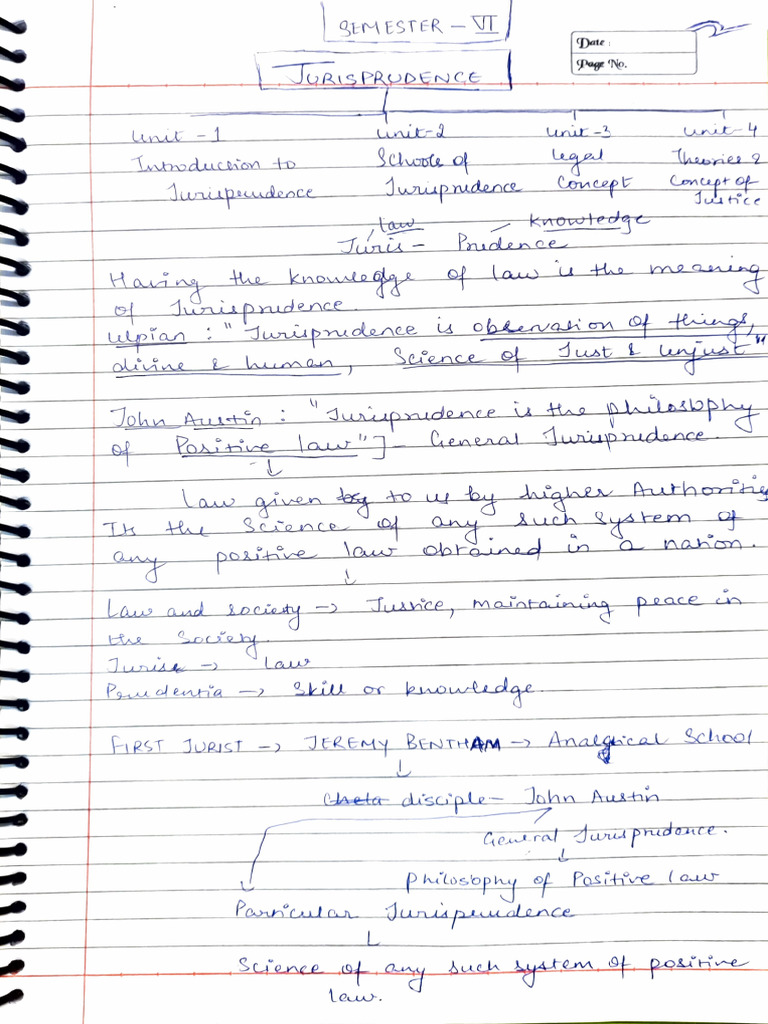 SEMESTER - VI
Date :
Page No.
JURISPRUDENCE
Unit - 1 Unit-2 Unit-3 Unit-4
Introduction to Schools of Legal Theories &
Jurisprudence Jurisprudence Concept Concept of
Justice
Law Knowledge
Juris - Prudence
Having the knowledge of law is the meaning
of Jurisprudence.
Ulpian : "Jurisprudence is observation of things,
divine & human, Science of Just & Unjust"
John Austin : "Jurisprudence is the philosophy
of Positive law"] - General Jurisprudence.
↓
Law given by to us by higher Authorities
It the Science of any such system of
any positive law obtained in a nation.
↓
Law and society → Justice, maintaining peace in
the Society.
Juris → Law
Prudentia → Skill or knowledge.
FIRST JURIST → JEREMY BENTHAM → Analytical School
↓
Cheta disciple - John Austin
General Jurisprudence.
↓
Philosophy of Positive law
Particular Jurisprudence
↓
Science of any such system of positive
law.